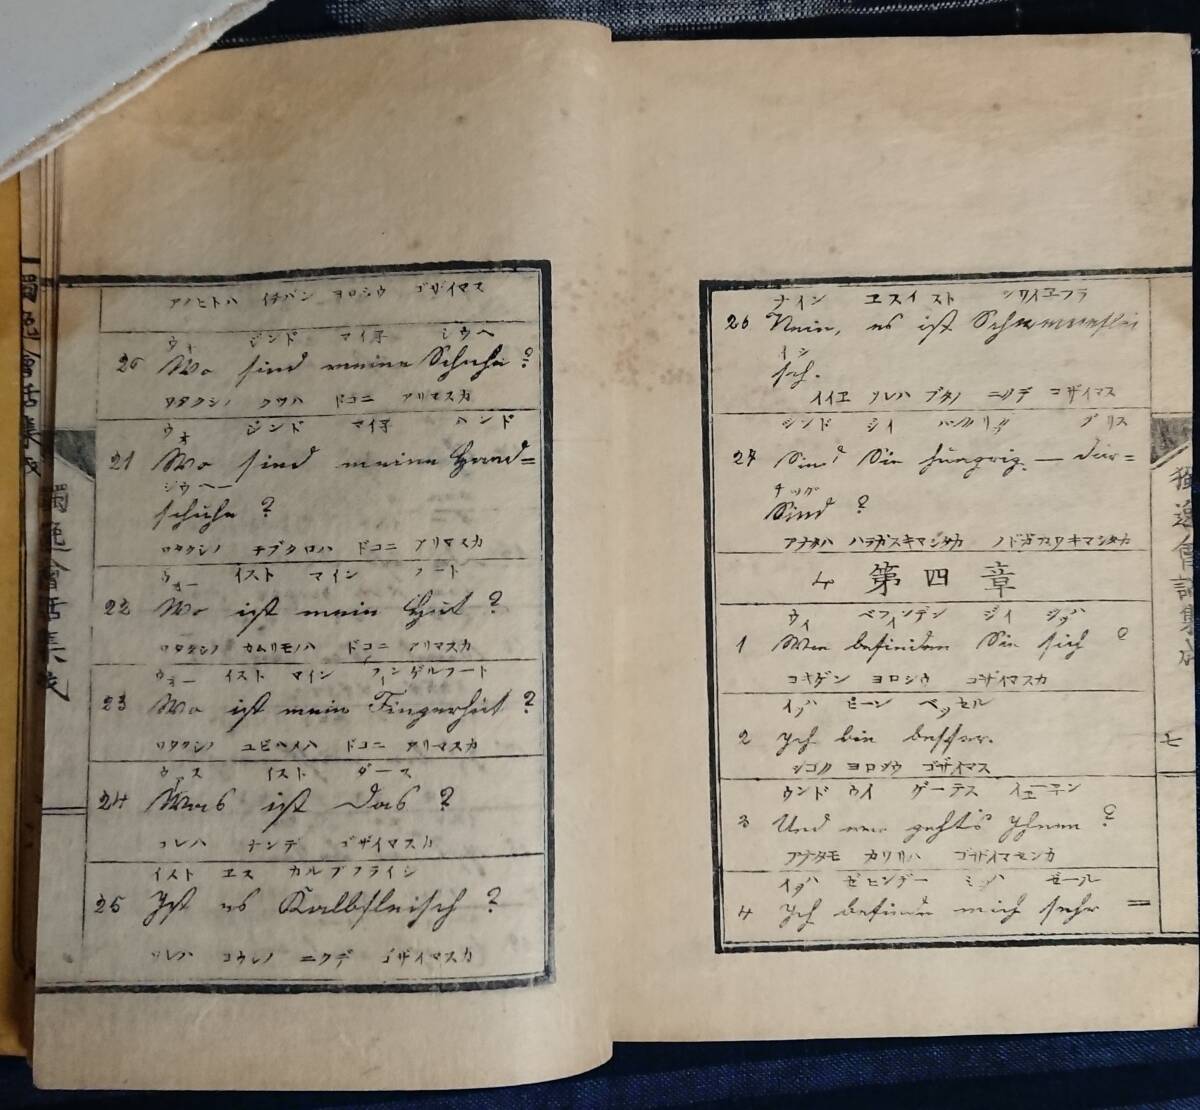 アノヒトハ イチバン ヨロシウ ゴザイマス
ウォ ジンド マイ子 シウヘ
20 Wo sind meine Schuhe?
ワタクシノ クツハ ドコニ アリマスカ
ウォ ジンド マイ子 ハンド
21 Wo sind meine Hand=
シウヘー
schuhe?
ワタクシノ テブクロハ ドコニ アリマスカ
ウォー イスト マイン フート
22 Wo ist mein Hut?
ワタクシノ カムリモノハ ドコニ アリマスカ
ウォー イスト マイン フィンゲルフート
23 Wo ist mein Fingerhut?
ワタクシノ ユビヘメハ ドコニ アリマスカ
ウァス イスト ダース
24 Was ist das?
コレハ ナンデ ゴザイマスカ
イスト ヱス カルブフライシ
25 Ist es Kalbfleisch?
ソレハ コウシノ ニクデ ゴザイマスカ
獨逸會話集成
ナイン ヱスイスト シワイヱフラ
26 Nein, es ist Schweneflei
イシ
sch.
イイヱ ソレハ ブタノ ニクデ ゴザイマス
ジンド ジイ ドリス
27 Sind Sie hungrig — dur=
チッグ
Sind?
アナタハ ハラガスキマシタカ ノドガカワキマシタカ
4 第四章
ウィ ベフィンデン ジイ ジッハ
1 Wie befinden Sie sich?
コキゲン ヨロシウ ゴザイマスカ
イッハ ビーン ベッセル
2 Ich bin besser.
シゴク ヨロシウ ゴザイマス
ウンド ウイ ゲーテス イーネン
3 Und wie geht's Ihnen?
アナタモ カワリハ ゴザイマセンカ
イッハ ゼール
4 Ich befinde mich sehr =
獨逸會話集成
七